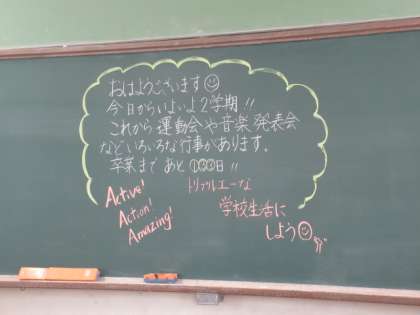 おはようございます
今日からいよいよ2学期!!
これから運動会や音楽発表会
などいろいろな行事があります。
卒業まであと100日!!
Active!
Action!
Amazing!
トリプルエーな
学校生活に
しよう